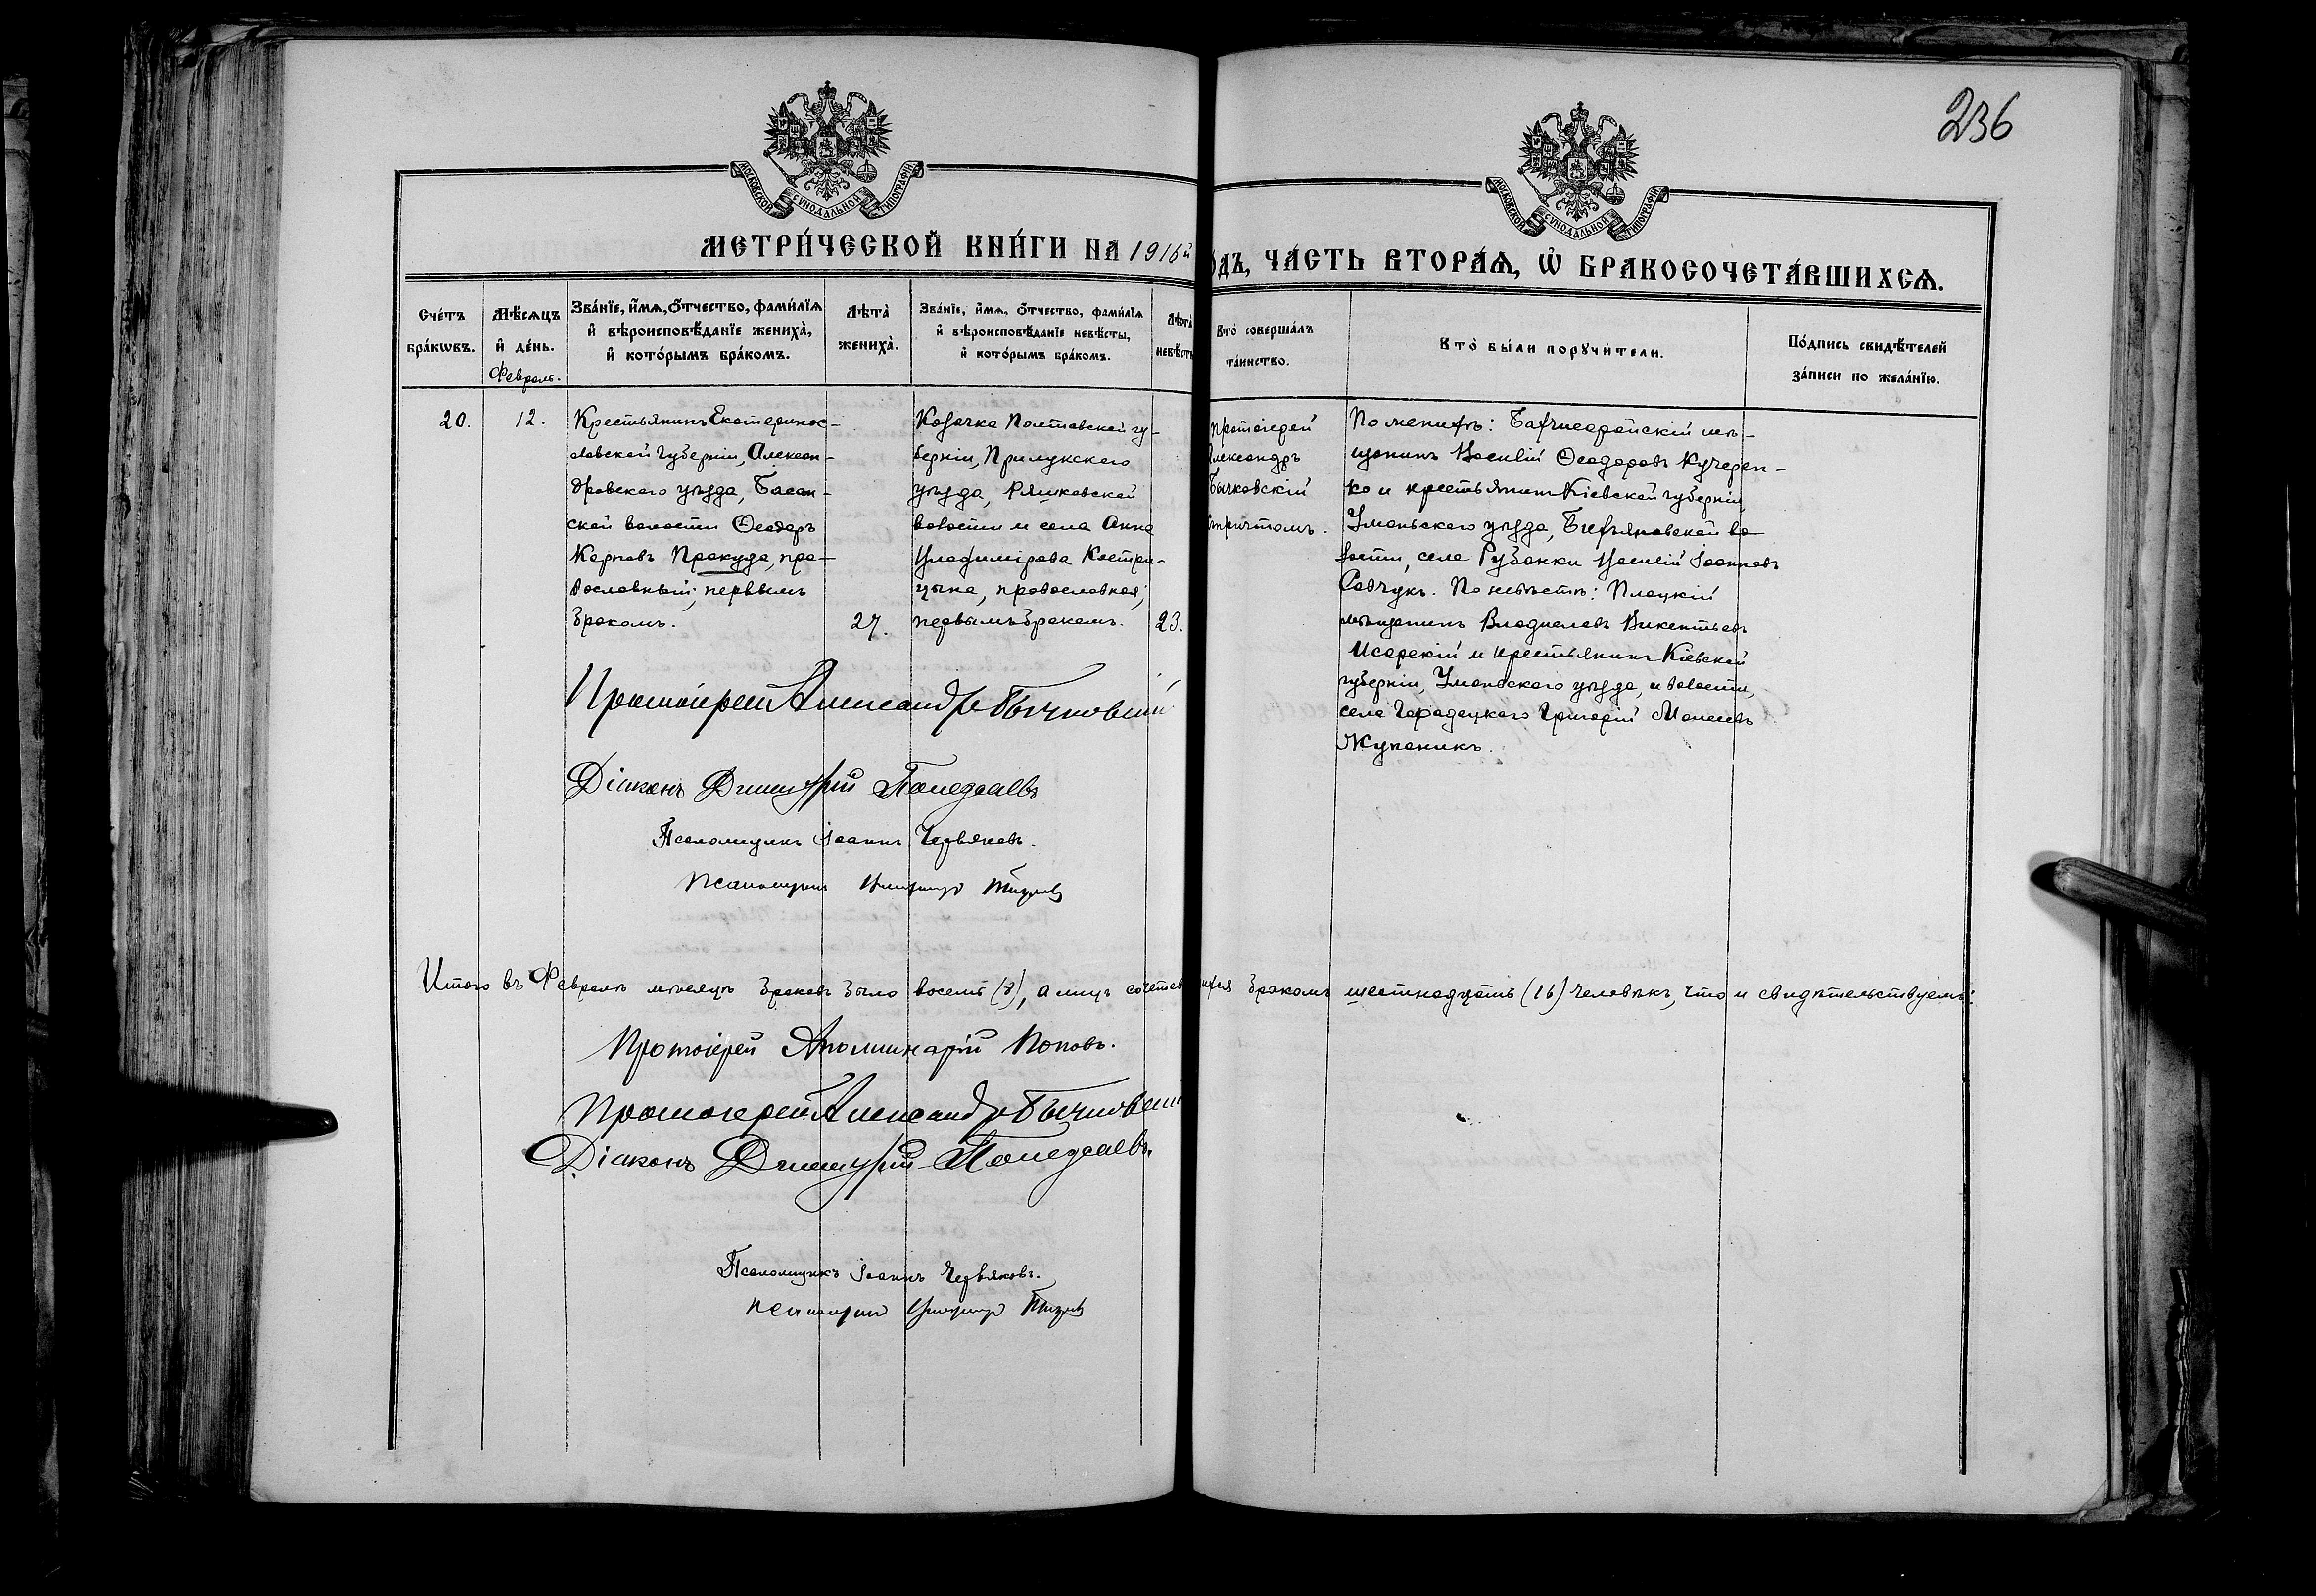 236
МОСКОВСКОЙ СѴНОДАЛЬНОЙ ТИПОГРАФІИ
МОСКОВСКОЙ СѴНОДАЛЬНОЙ ТИПОГРАФІИ
МЕТРИ́ЧЕСКОЙ КНИ́ГИ НА 1916й
ОДЪ, ЧА́СТЬ ВТОРА́Ѧ, Ѡ҆ БРАКОСОЧЕТА́ВШИХСѦ.
Сче́тъ бра́кѡвъ.
Мѣ́сѧцъ и҆ де́нь.
Февраль.
Зва́нїе, и҆́мѧ, ѻ҆́тчество, фами́лїѧ
и҆ вѣроисповѣ́данїе жениха̀,
и҆ кото́рымъ бра́комъ.
Лѣта̀ жениха̀.
Зва́нїе, и҆́мѧ, ѻ҆́тчество, фами́лїѧ
и҆ вѣроисповѣ́данїе невѣ́сты,
и҆ кото́рымъ бра́комъ.
Лѣта̀ невѣ́сты
Кто̀ соверша́лъ
та́инство.
Кто̀ бы́ли порꙋчи́тели.
По́дпись свидѣ́телей
за́писи по жела́нїю.
20.
12.
Крестьянинъ Екатеринос-
лавской губерніи, Алексан-
дровскаго уѣзда, Басан-
ской волости Ѳеодоръ
Карповъ Прокуда, пра-
вославный; первымъ
бракомъ.
27.
Козачка Полтавской гу-
берніи, Прилукскаго
уѣзда, Ряшковской
волости и села Анна
Владимірова Костри-
цына, православная;
первымъ бракомъ.
23.
Протоіерей
Александръ
Бычковскій
съ причтомъ.
По женихѣ: Бахчисарайскій мѣ-
щанинъ Василій Ѳеодоровъ Кучерен-
ко и крестьянинъ Кіевской губерніи,
Уманьскаго уѣзда, во-
лости, села Рубанки Василій Іоанновъ
Савчукъ. По невѣстѣ: Плоцкій
мѣщанинъ Владиславъ Викентьевъ
Исарскій и крестьянинъ Кіевской
губерніи, Уманьскаго уѣзда, и волости,
села Городецкаго Григорій Моисеевъ
Жупаникъ.
Протоіерей Александръ Бычковскій
Діаконъ Димитрій
Псаломщикъ Іоаннъ Червяковъ.
Псаломщикъ
Итого въ Февралѣ мѣсяцѣ браковъ было восемь (8), а лицъ сочетавшихся бракомъ шестнадцать (16) человѣкъ, что и свидѣтельствуемъ:
Протоіерей Аполлинарій Поповъ.
Протоіерей Александръ Бычковскій
Діаконъ Димитрій
Псаломщикъ Іоаннъ Червяковъ.
Псаломщикъ